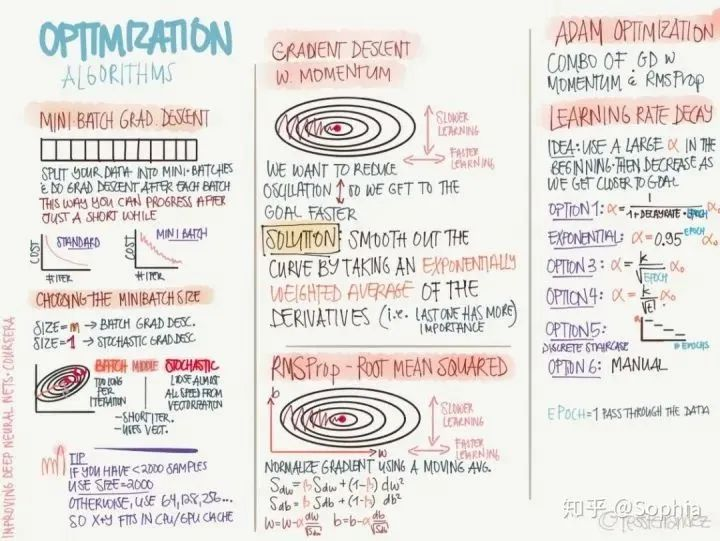 OPTIMIZATION
ALGORITHMS
MINI-BATCH GRAD. DESCENT
SPLIT YOUR DATA INTO MINI-BATCHES
& DO GRAD DESCENT AFTER EACH BATCH
THIS WAY YOU CAN PROGRESS AFTER
JUST A SHORT WHILE
COST
STANDARD
# ITER
COST
MINI BATCH
# ITER
CHOOSING THE MINIBATCH SIZE
SIZE=m → BATCH GRAD DESC.
SIZE=1 → STOCHASTIC GRAD DESC.
BATCH
TOO LONG
PER
ITERATION
MIDDLE
STOCHASTIC
LOSE ALMOST
ALL SPEED FROM
VECTORIZATION
-SHORT ITER.
-USES VECT.
TIP
IF YOU HAVE <2000 SAMPLES
USE SIZE=2000
OTHERWISE, USE 64,128,256...
SO X+Y FITS IN CPU/GPU CACHE
IMPROVING DEEP NEURAL NETS · COURSERA
GRADIENT DESCENT
W. MOMENTUM
SLOWER
LEARNING
FASTER
LEARNING
WE WANT TO REDUCE
OSCILLATION ↕ SO WE GET TO THE
GOAL FASTER
SOLUTION: SMOOTH OUT THE
CURVE BY TAKING AN EXPONENTIALLY
WEIGHTED AVERAGE OF THE
DERIVATIVES (i.e. LAST ONE HAS MORE)
IMPORTANCE
RMSProp - ROOT MEAN SQUARED
b
w
SLOWER
LEARNING
FASTER
LEARNING
NORMALIZE GRADIENT USING A MOVING AVG.
Sdw = β Sdw + (1-β) dw²
Sdb = β Sdb + (1-β) db²
w=w-α dw/√Sdw b=b-α db/√Sdb
ADAM OPTIMIZATION
COMBO OF GD W
MOMENTUM & RMSProp
LEARNING RATE DECAY
IDEA: USE A LARGE α IN THE
BEGINNING. THEN DECREASE AS
WE GET CLOSER TO GOAL
OPTION 1: α = 1/(1+DECAYRATE·EPOCH) α₀
EXPONENTIAL: α=0.95^EPOCH α₀
OPTION 3: α = k/√EPOCH α₀
OPTION 4: α = k/√t α₀
OPTION 5:
DISCRETE STAIRCASE
α
EPOCHS
OPTION 6: MANUAL
EPOCH = 1 PASS THROUGH THE DATA
知乎 @Sophia